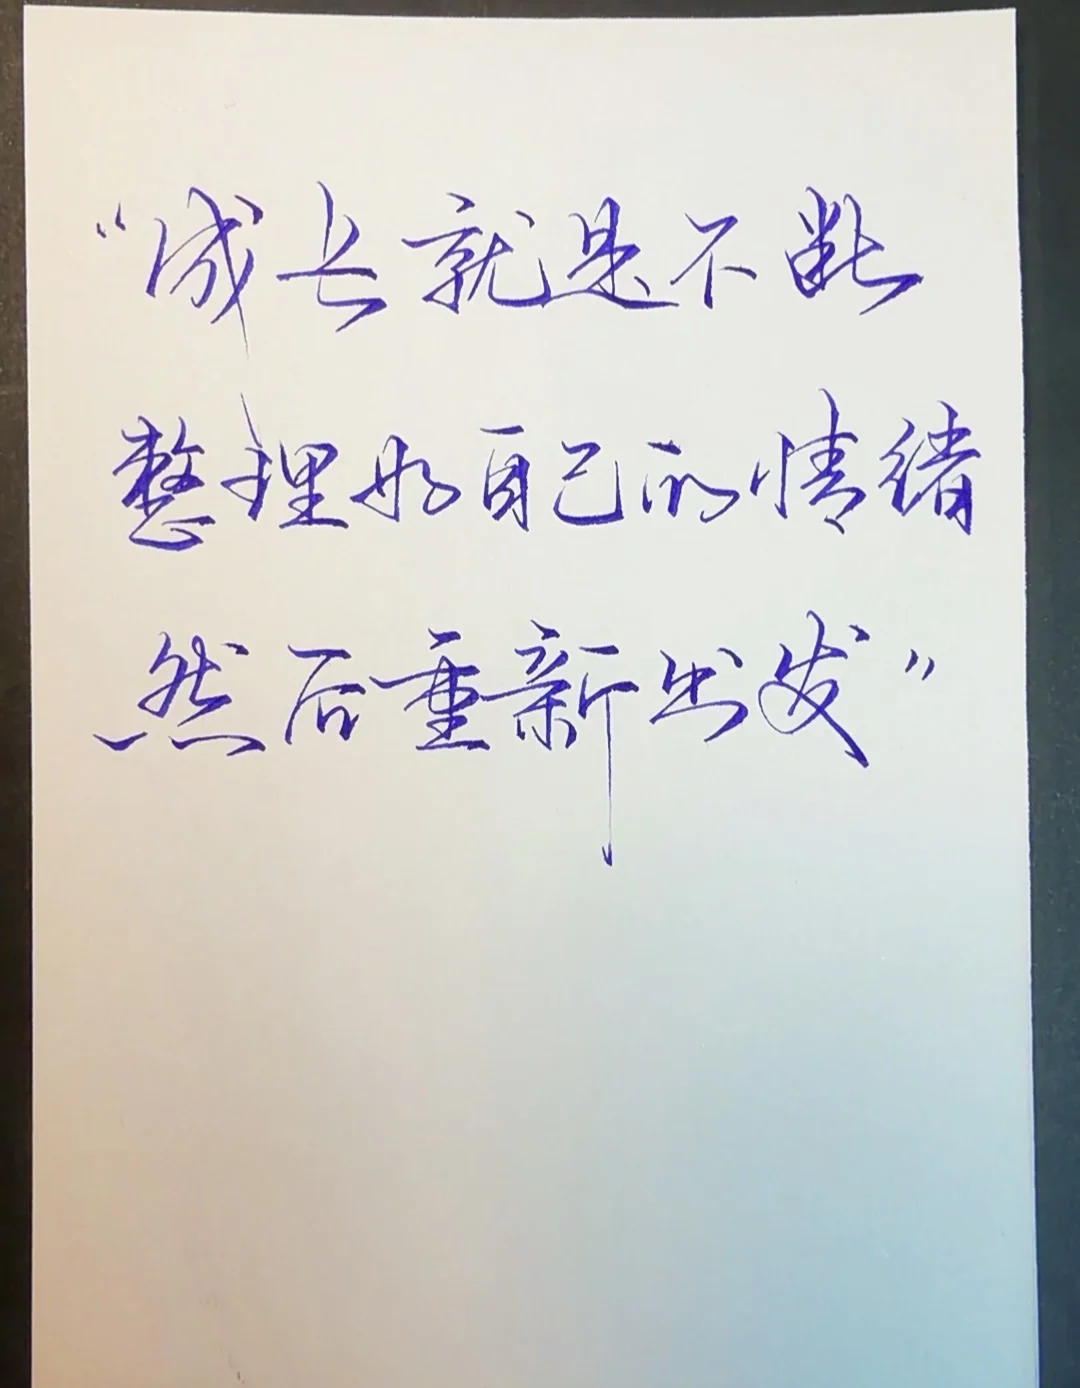 “成长就是不断
整理好自己的情绪
然后重新出发”